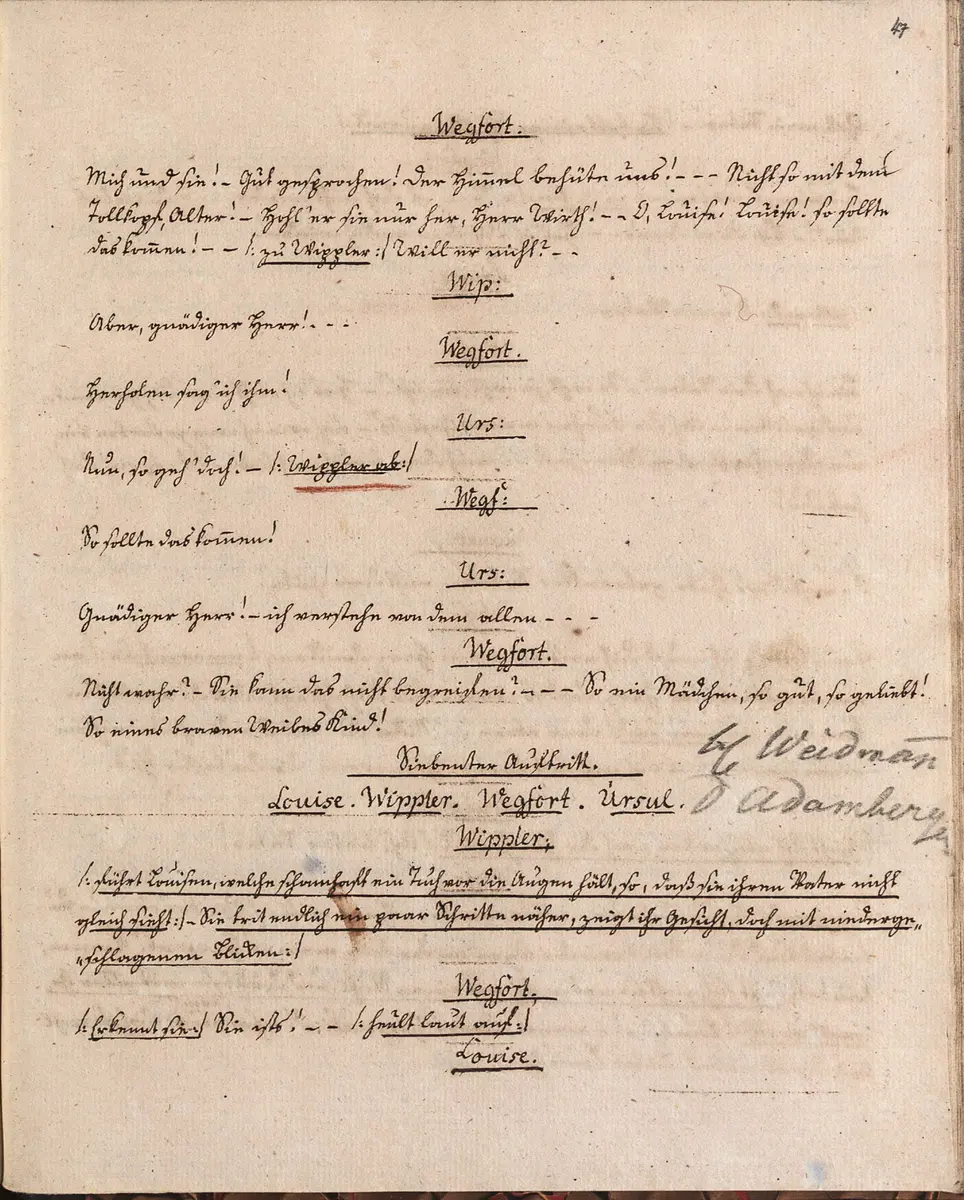 47
Wegfort:
Mich und sie! – Gut gesprochen! Der Himmel behüte uns! – – – Nicht so mit dem
Tollkopf, Alter! – Hohl' er sie nur her, Herr Wirth! – – O, Louise! Louise! so sollte
das kommen! – – /: zu Wippler :/ Will er nicht? – –
Wip:
Aber, gnädiger Herr! – – –
Wegfort.
Herholen sag' ich ihm!
Urs:
Nun, so geh' doch! – /: Wippler ab :/
Wegf:
So sollte das kommen!
Urs:
Gnädiger Herr! – ich verstehe von dem allen – – –
Wegfort.
Nicht wahr? – Sie kann das nicht begreifen? – – – So ein Mädchen, so gut, so geliebt!
So eines braven Weibes Kind!
Siebenter Auftritt.
Louise. Wippler. Wegfort. Ursul.
Weidman̅
Adamberge
Wippler;
/: führt Louisen, welche schamhaft ein Tuch vor die Augen hält, so, daß sie ihren Vater nicht
gleich sieht :/ – Sie trit endlich ein paar Schritte näher, zeigt ihr Gesicht, doch mit niederge„
„schlagenen Blicken :/
Wegfort;
/: Erkennt sie :/ Sie ists! – – /: heult laut auf :/
Louise.